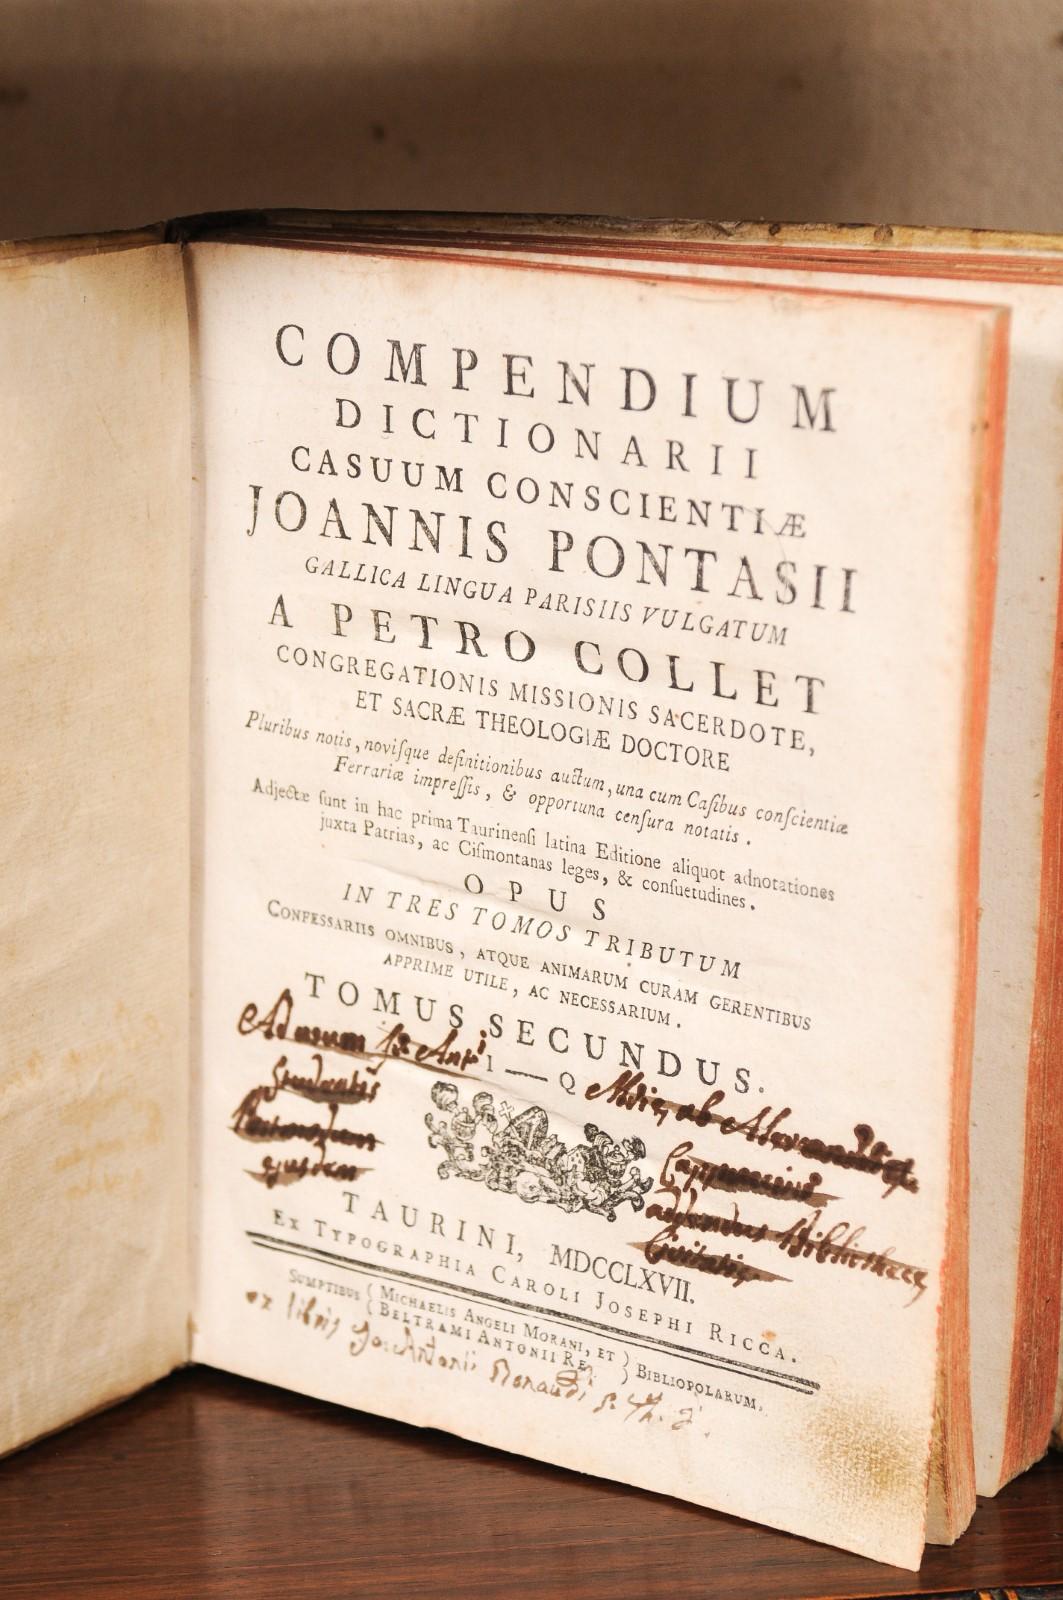 COMPENDIUM
DICTIONARII
CASUUM CONSCIENTIÆ
JOANNIS PONTASII
GALLICA LINGUA PARISIIS VULGATUM
A PETRO COLLET
CONGREGATIONIS MISSIONIS SACERDOTE,
ET SACRÆ THEOLOGIÆ DOCTORE
Pluribus notis, noviſque definitionibus auctum, una cum Caſibus conſcientiæ
Ferrariæ impreſſis, & opportuna cenſura notatis.
Adjectæ ſunt in hac prima Taurinenſi latina Editione aliquot adnotationes
juxta Patrias, ac Ciſmontanas leges, & conſuetudines.
OPUS
IN TRES TOMOS TRIBUTUM
CONFESSARIIS OMNIBUS, ATQUE ANIMARUM CURAM GERENTIBUS
APPRIME UTILE, AC NECESSARIUM.
TOMUS SECUNDUS.
I — Q
Ad usum
ab
Bibliothecæ
TAURINI, MDCCLXVII.
EX TYPOGRAPHIA CAROLI JOSEPHI RICCA.
SUMPTIBUS { MICHAELIS ANGELI MORANI, ET } BIBLIOPOLARUM.
{ BELTRAMI ANTONII RE, }
ex libris Jo: Antonii